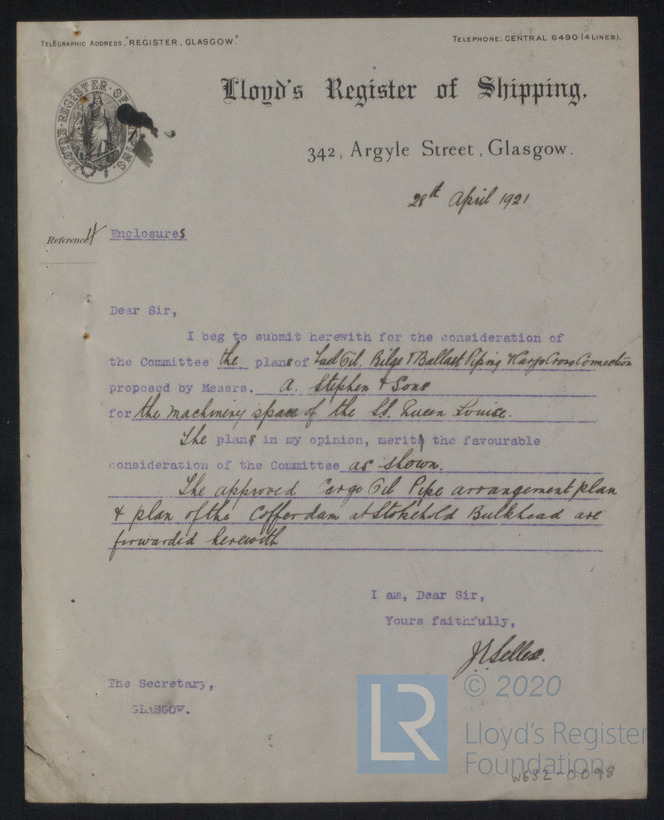 TELEGRAPHIC ADDRESS, "REGISTER, GLASGOW."
TELEPHONE: CENTRAL 6490 (4 LINES).
LLOYD'S REGISTER OF SHIPPING
Lloyd's Register of Shipping,
342, Argyle Street, Glasgow.
28th April 1921
Reference 4 Enclosures
Dear Sir,
I beg to submit herewith for the consideration of
the Committee the plans of Fuel Oil, Bilge & Ballast Piping & Cargo Cross Connection
proposed by Messrs. A. Stephen & Sons
for the machinery space of the S.S. Queen Louise.
The plans in my opinion, merit the favourable
consideration of the Committee as shown.
The approved Cargo Oil Pipe arrangement plan
& plan of the Cofferdam at Stokehold Bulkhead are
forwarded herewith
I am, Dear Sir,
Yours faithfully,
The Secretary,
GLASGOW.
LR
© 2020
Lloyd's Register
Foundation
W632-0098